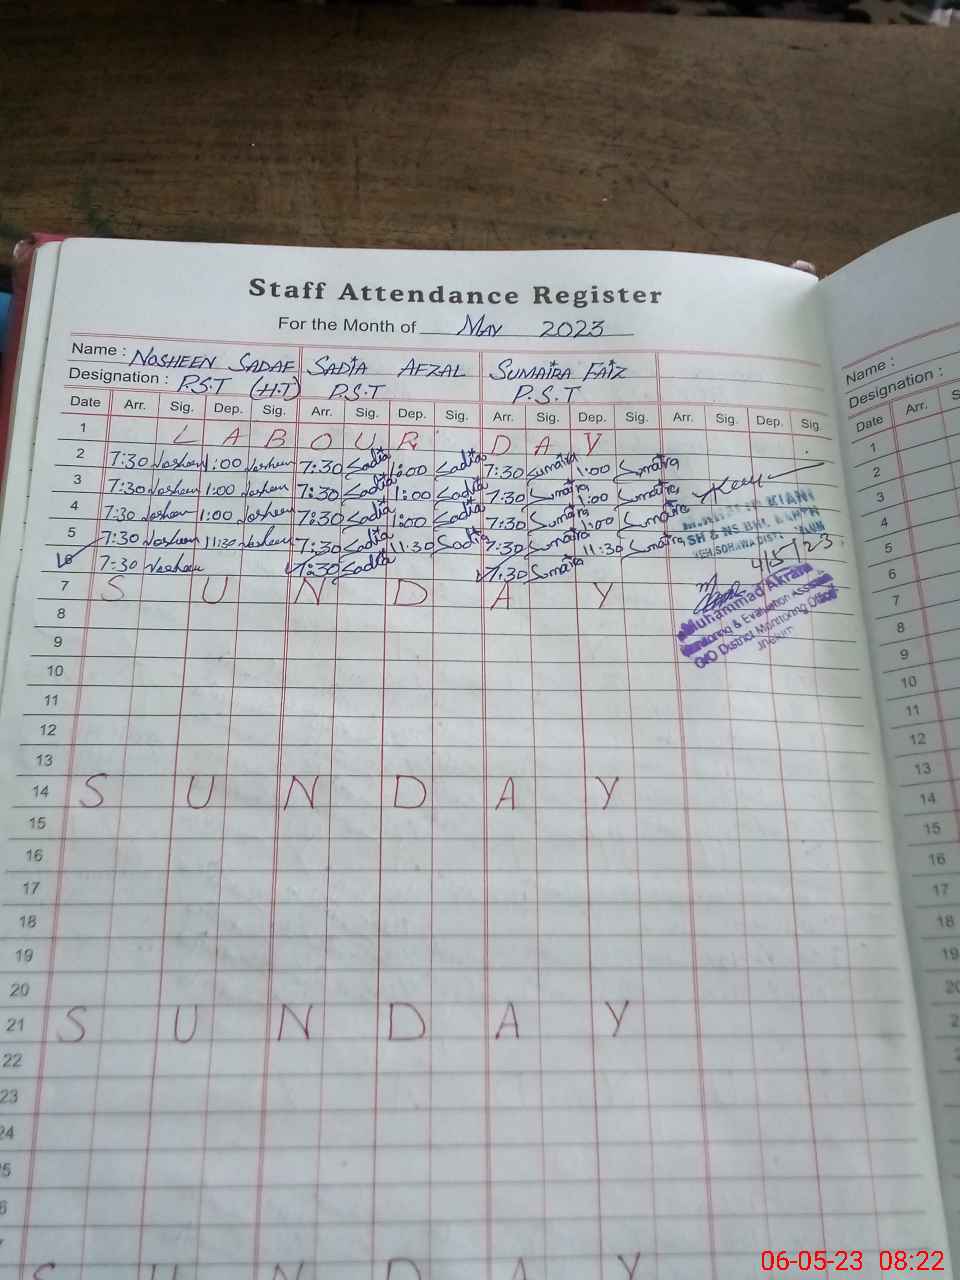 Staff Attendance Register
For the Month of MAY 2023
Name : NOSHEEN SADAF SADIA AFZAL SUMAIRA FAIZ
Designation : P.S.T (H.T) P.S.T P.S.T
Date Arr. Sig. Dep. Sig. Arr. Sig. Dep. Sig. Arr. Sig. Dep. Sig. Arr. Sig. Dep. Sig.
1 LABOUR DAY
2 7:30 Nosheen 1:00 Nosheen 7:30 Sadia 1:00 Sadia 7:30 Sumaira 1:00 Sumaira
3 7:30 Nosheen 1:00 Nosheen 7:30 Sadia 1:00 Sadia 7:30 Sumaira 1:00 Sumaira
4 7:30 Nosheen 1:00 Nosheen 7:30 Sadia 1:00 Sadia 7:30 Sumaira 1:00 Sumaira
5 7:30 Nosheen 11:30 Nosheen 7:30 Sadia 11:30 Sadia 7:30 Sumaira 11:30 Sumaira
6 7:30 Nosheen 7:30 Sadia 7:30 Sumaira
KIANI
4/5/23
Muhammad Akram
Monitoring & Evaluation Assistant
O/O District Monitoring Officer
Jhelum
7 SUNDAY
8
9
10
11
12
13
14 SUNDAY
15
16
17
18
19
20
21 SUNDAY
22
23
24
SUNDAY
Name :
Designation :
Date Arr.
1
2
3
4
5
6
7
8
9
10
11
12
13
14
15
16
17
18
19
20
21
06-05-23 08:22